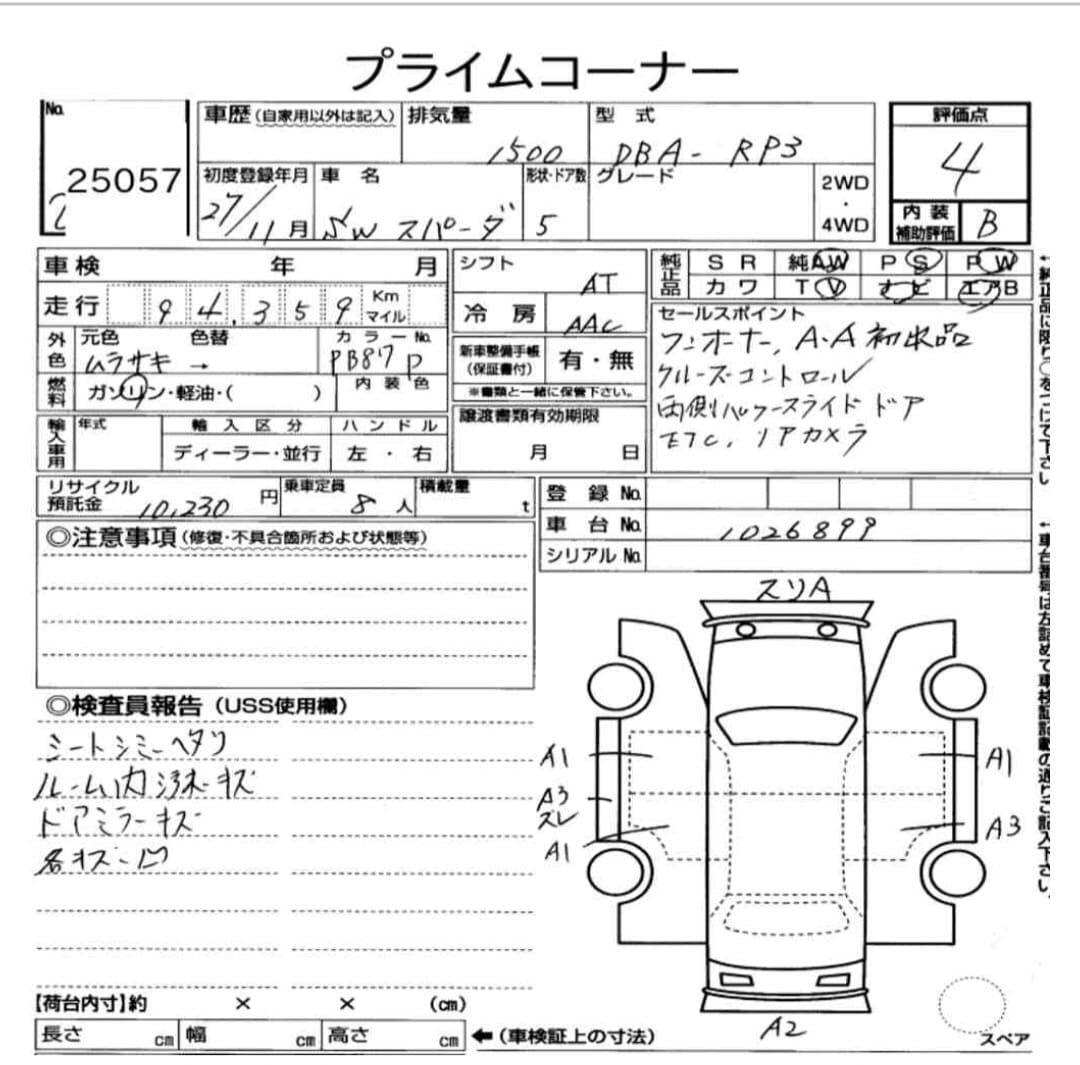 プライムコーナー
No.
25057
車歴(自家用以外は記入)
排気量
1500
型 式
DBA- RP3
評価点
4
初度登録年月
27/11月
車 名
SW スパーダ
形状・ドア数
5
グレード
2WD
・
4WD
内 装
補助評価
B
車検 年 月
シフト
AT
純正品
SR 純AW PS PW
カワ TV ナビ エアB
走行
94,359
Km
マイル
冷 房
AAC
セールスポイント
ワンオーナー, A・A初出品
クルーズコントロール
両側パワースライドドア
ETC, リアカメラ
外色
元色 色替
ムラサキ →
カラーNo.
PB87P
新車整備手帳
(保証書付)
有・無
※書類と一緒に保管下さい。
燃料
ガソリン・軽油・( )
内装色
譲渡書類有効期限
月 日
輸入車用
年式
輸入区分
ディーラー・並行
ハンドル
左・右
リサイクル
預託金
10,230円
乗車定員
8人
積載量
t
登 録 No.
車 台 No.
1026899
シリアル No.
◎注意事項(修復・不具合箇所および状態等)
←純正品に限り○をつけて下さい
←車台番号は左詰めで車検証記載の通りご記入下さい。
◎検査員報告(USS使用欄)
シートシミーヘタリ
ルーム内汚ネーキズ
ドアミラーキズ
各キズー凹
スリA
A1
A3
ズレ
A1
A1
A3
A2
スペア
【荷台内寸】約 × × (cm)
長さ cm 幅 cm 高さ cm
←(車検証上の寸法)